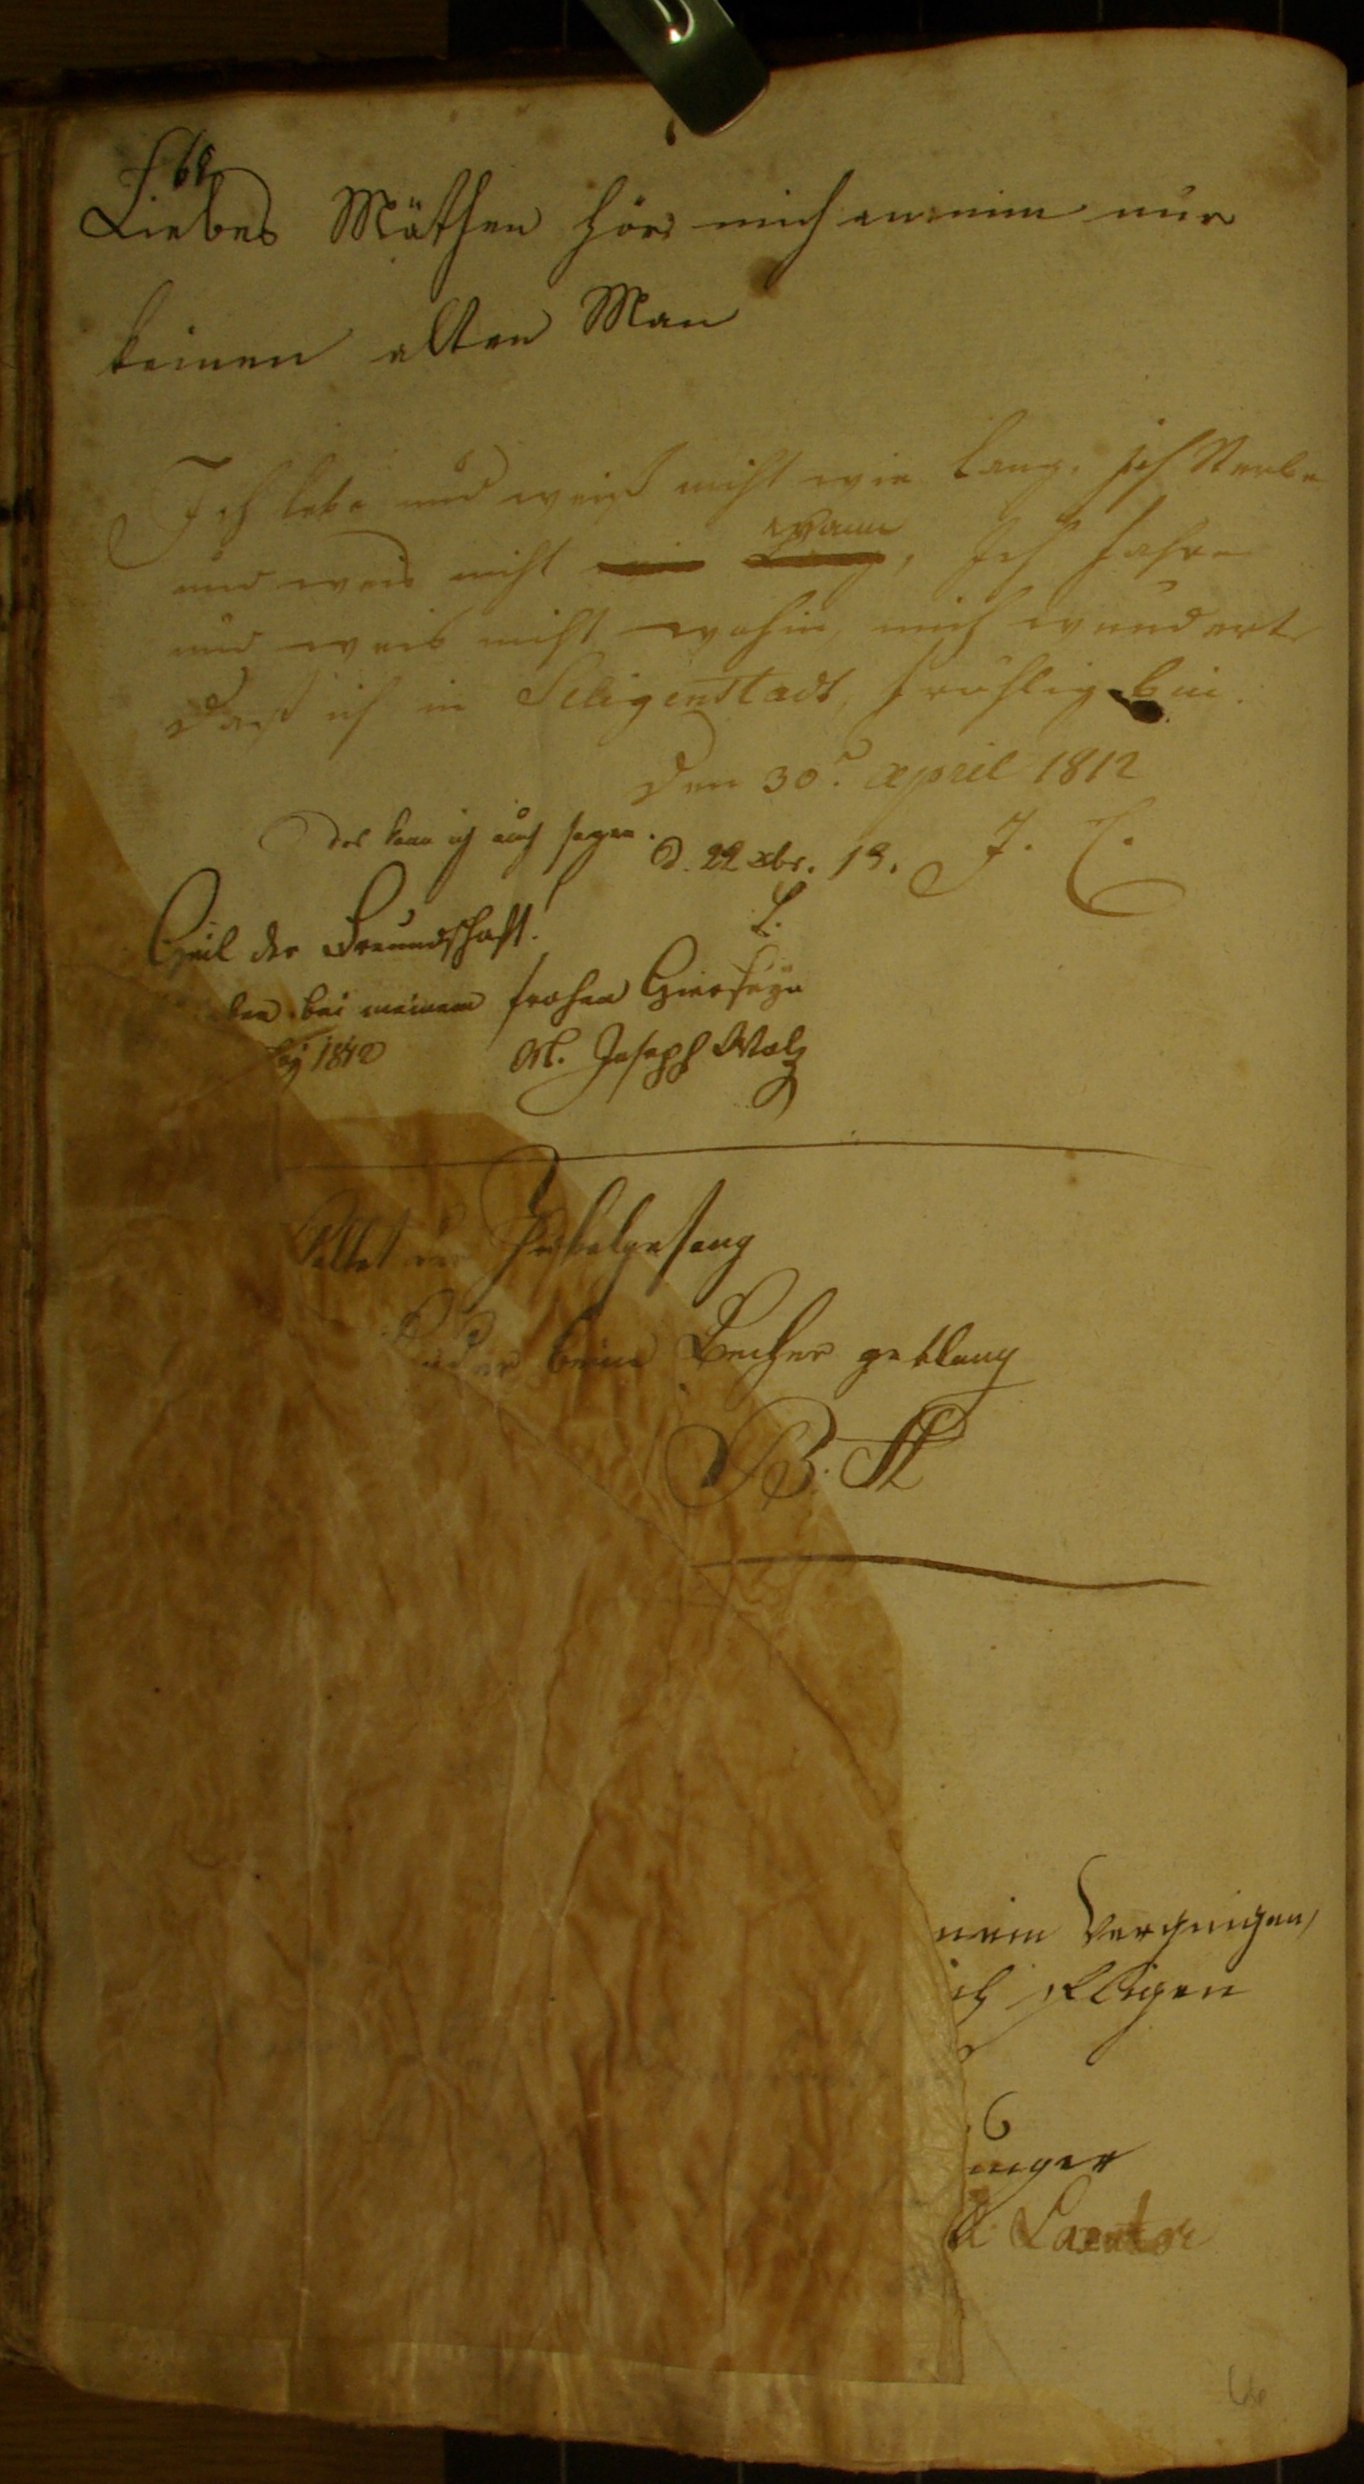 68
Liebes Mäthen hör mich an nim nur
keinen alten Man
Ich lebe und weiß nicht wie lang, ich Sterbe
und weis nicht wann, Ich fahre
und weis nicht wohin, mich wundert
daß ich in Seligenstadt, fröhlig bin.
Den 30. april 1812
J. C.
Das kann ich auch sagen.
d. 22 xbr. 13.
L.
Heil der Freundschaft!
bei meinem frohen Hierseyn
1812 M. Joseph Walz
Jubelgesang
beim Becher geklang
B. St
mein Vergnigen,
ich
6
unger